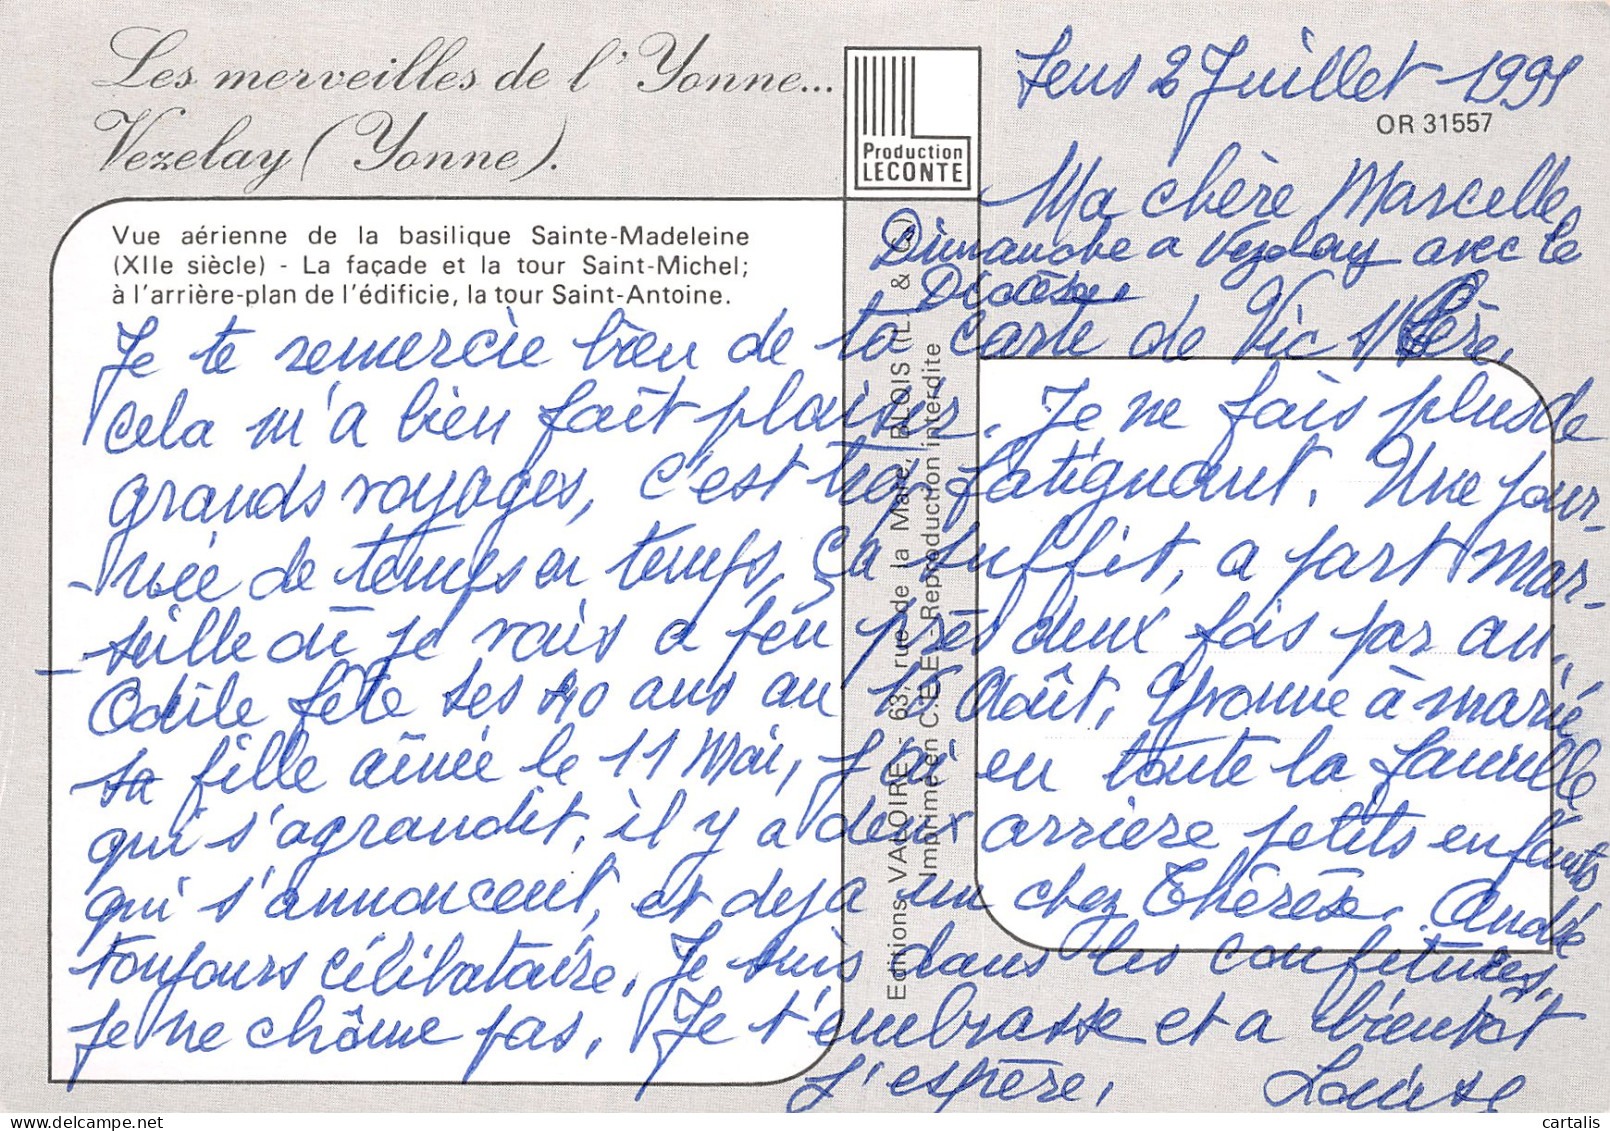 Les merveilles de l'Yonne...
Vezelay (Yonne).
Vue aérienne de la basilique Sainte-Madeleine
(XIIe siècle) - La façade et la tour Saint-Michel;
à l'arrière-plan de l'édificie, la tour Saint-Antoine.
Production
LECONTE
OR 31557
Editions VALOIRE - 63, rue de la Mare, BLOIS (L. & C.)
Imprimé en C.E.E. - Reproduction interdite
Sens 2 Juillet 1991
Ma chère Marcelle,
Dimanche a Vezelay avec le
Diocèse.
Je te remercie bien de ta carte de Vic s/Cère,
Cela m'a bien fait plaisir. Je ne fais plus de
grands voyages, c'est trop fatiguant. Une jour-
-née de temps en temps, ça suffit, a part Mar-
-seille où je vais a peu près deux fois par an.
Odile fête ses 40 ans au 15 Août, Yvonne à marié
sa fille aînée le 11 Mai, j'ai eu toute la famille
qui s'agrandit, il y a deux arriere petits enfants
qui s'annoncent, et deja un chez Thérèse. André
toujours célibataire. Je suis dans les confitures,
je ne chôme pas. Je t'embrasse et a bientôt
j'espère, Louise
cartalis